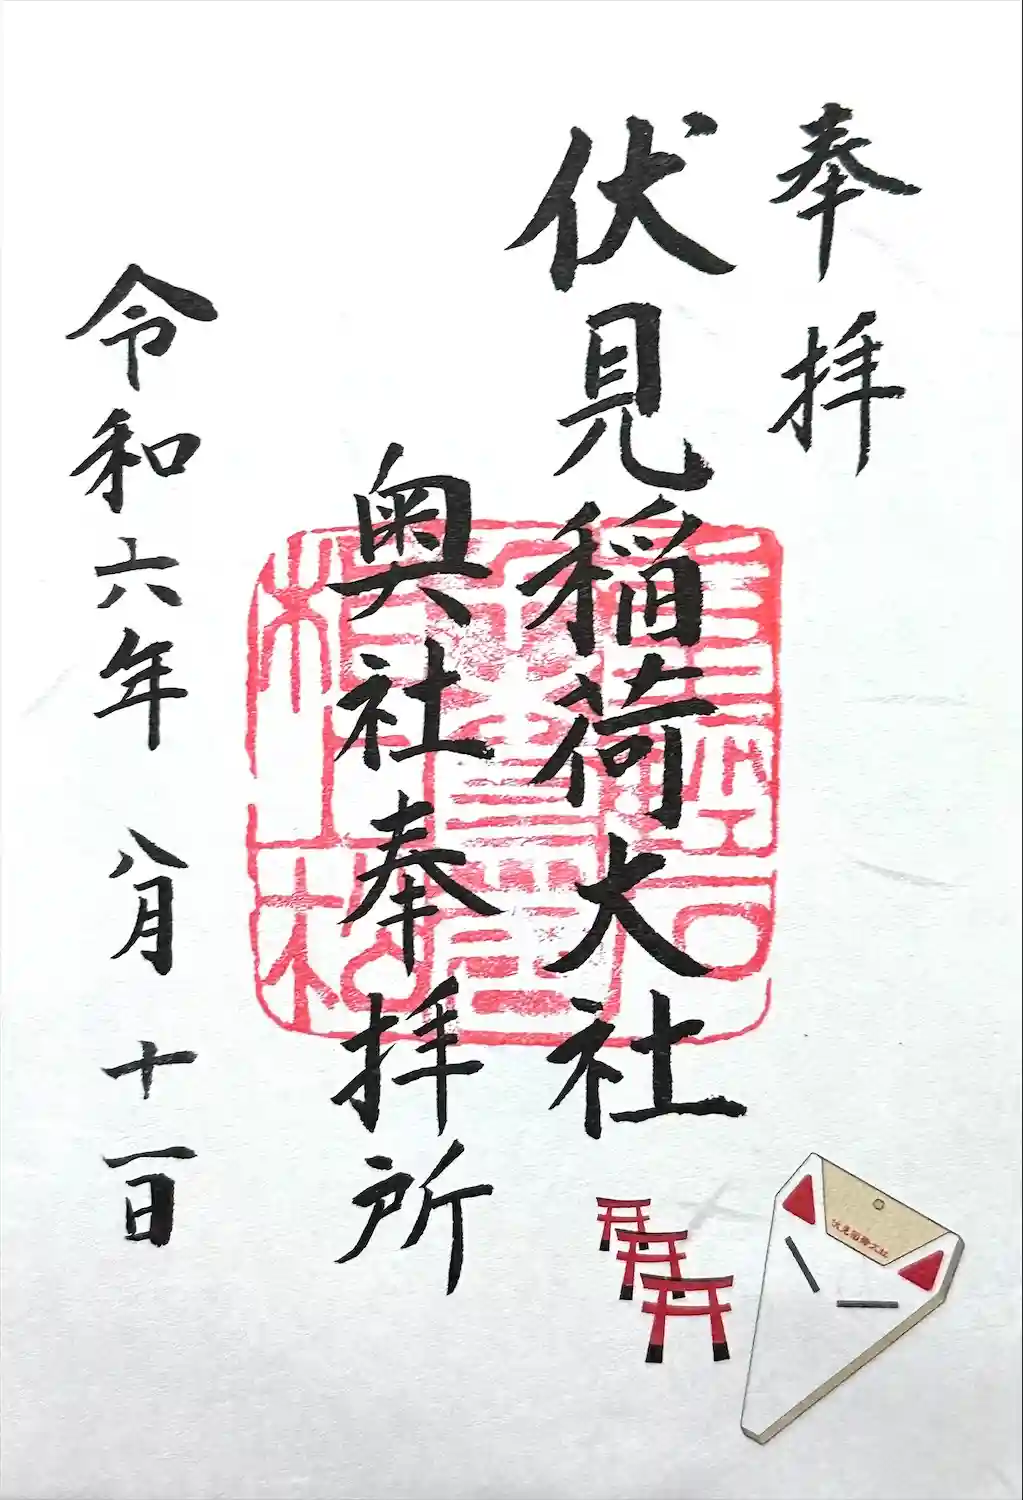 奉拝
伏見稲荷大社
奥社奉拝所
令和六年八月十一日
伏見稲荷大社